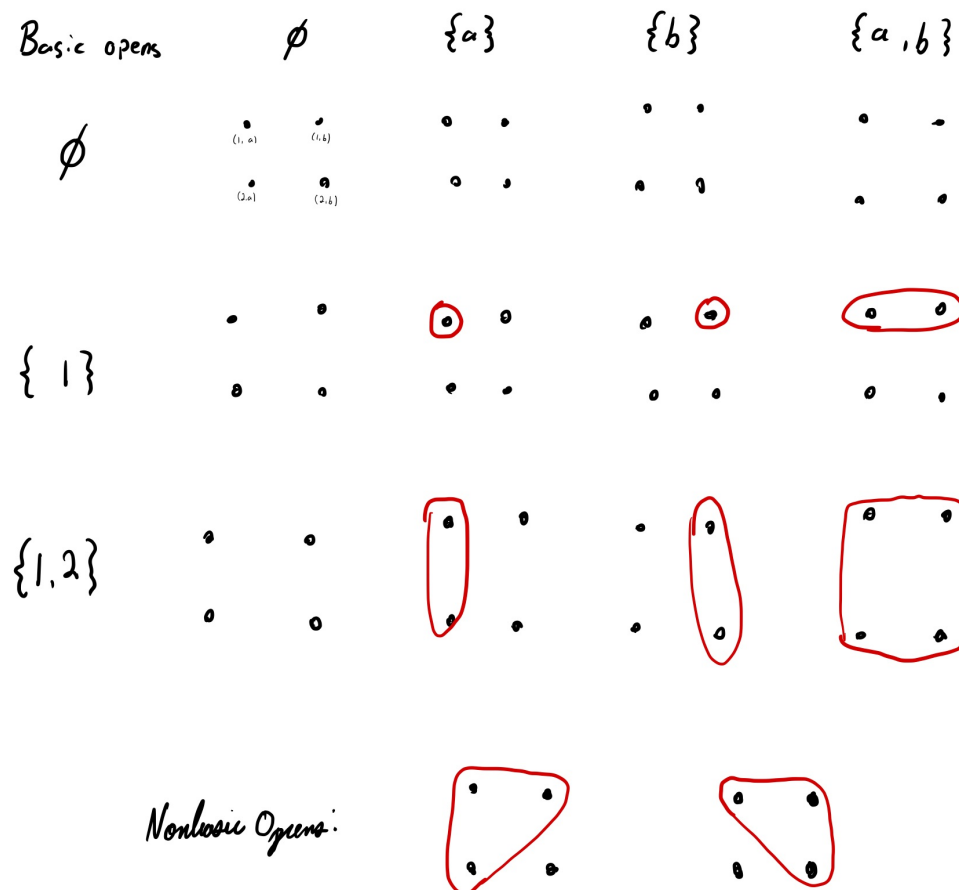 Basic opens ∅ {a} {b} {a,b}
∅
(1,a) (1,b)
(2,a) (2,b)
{1}
{1,2}
Nonbasic Opens: